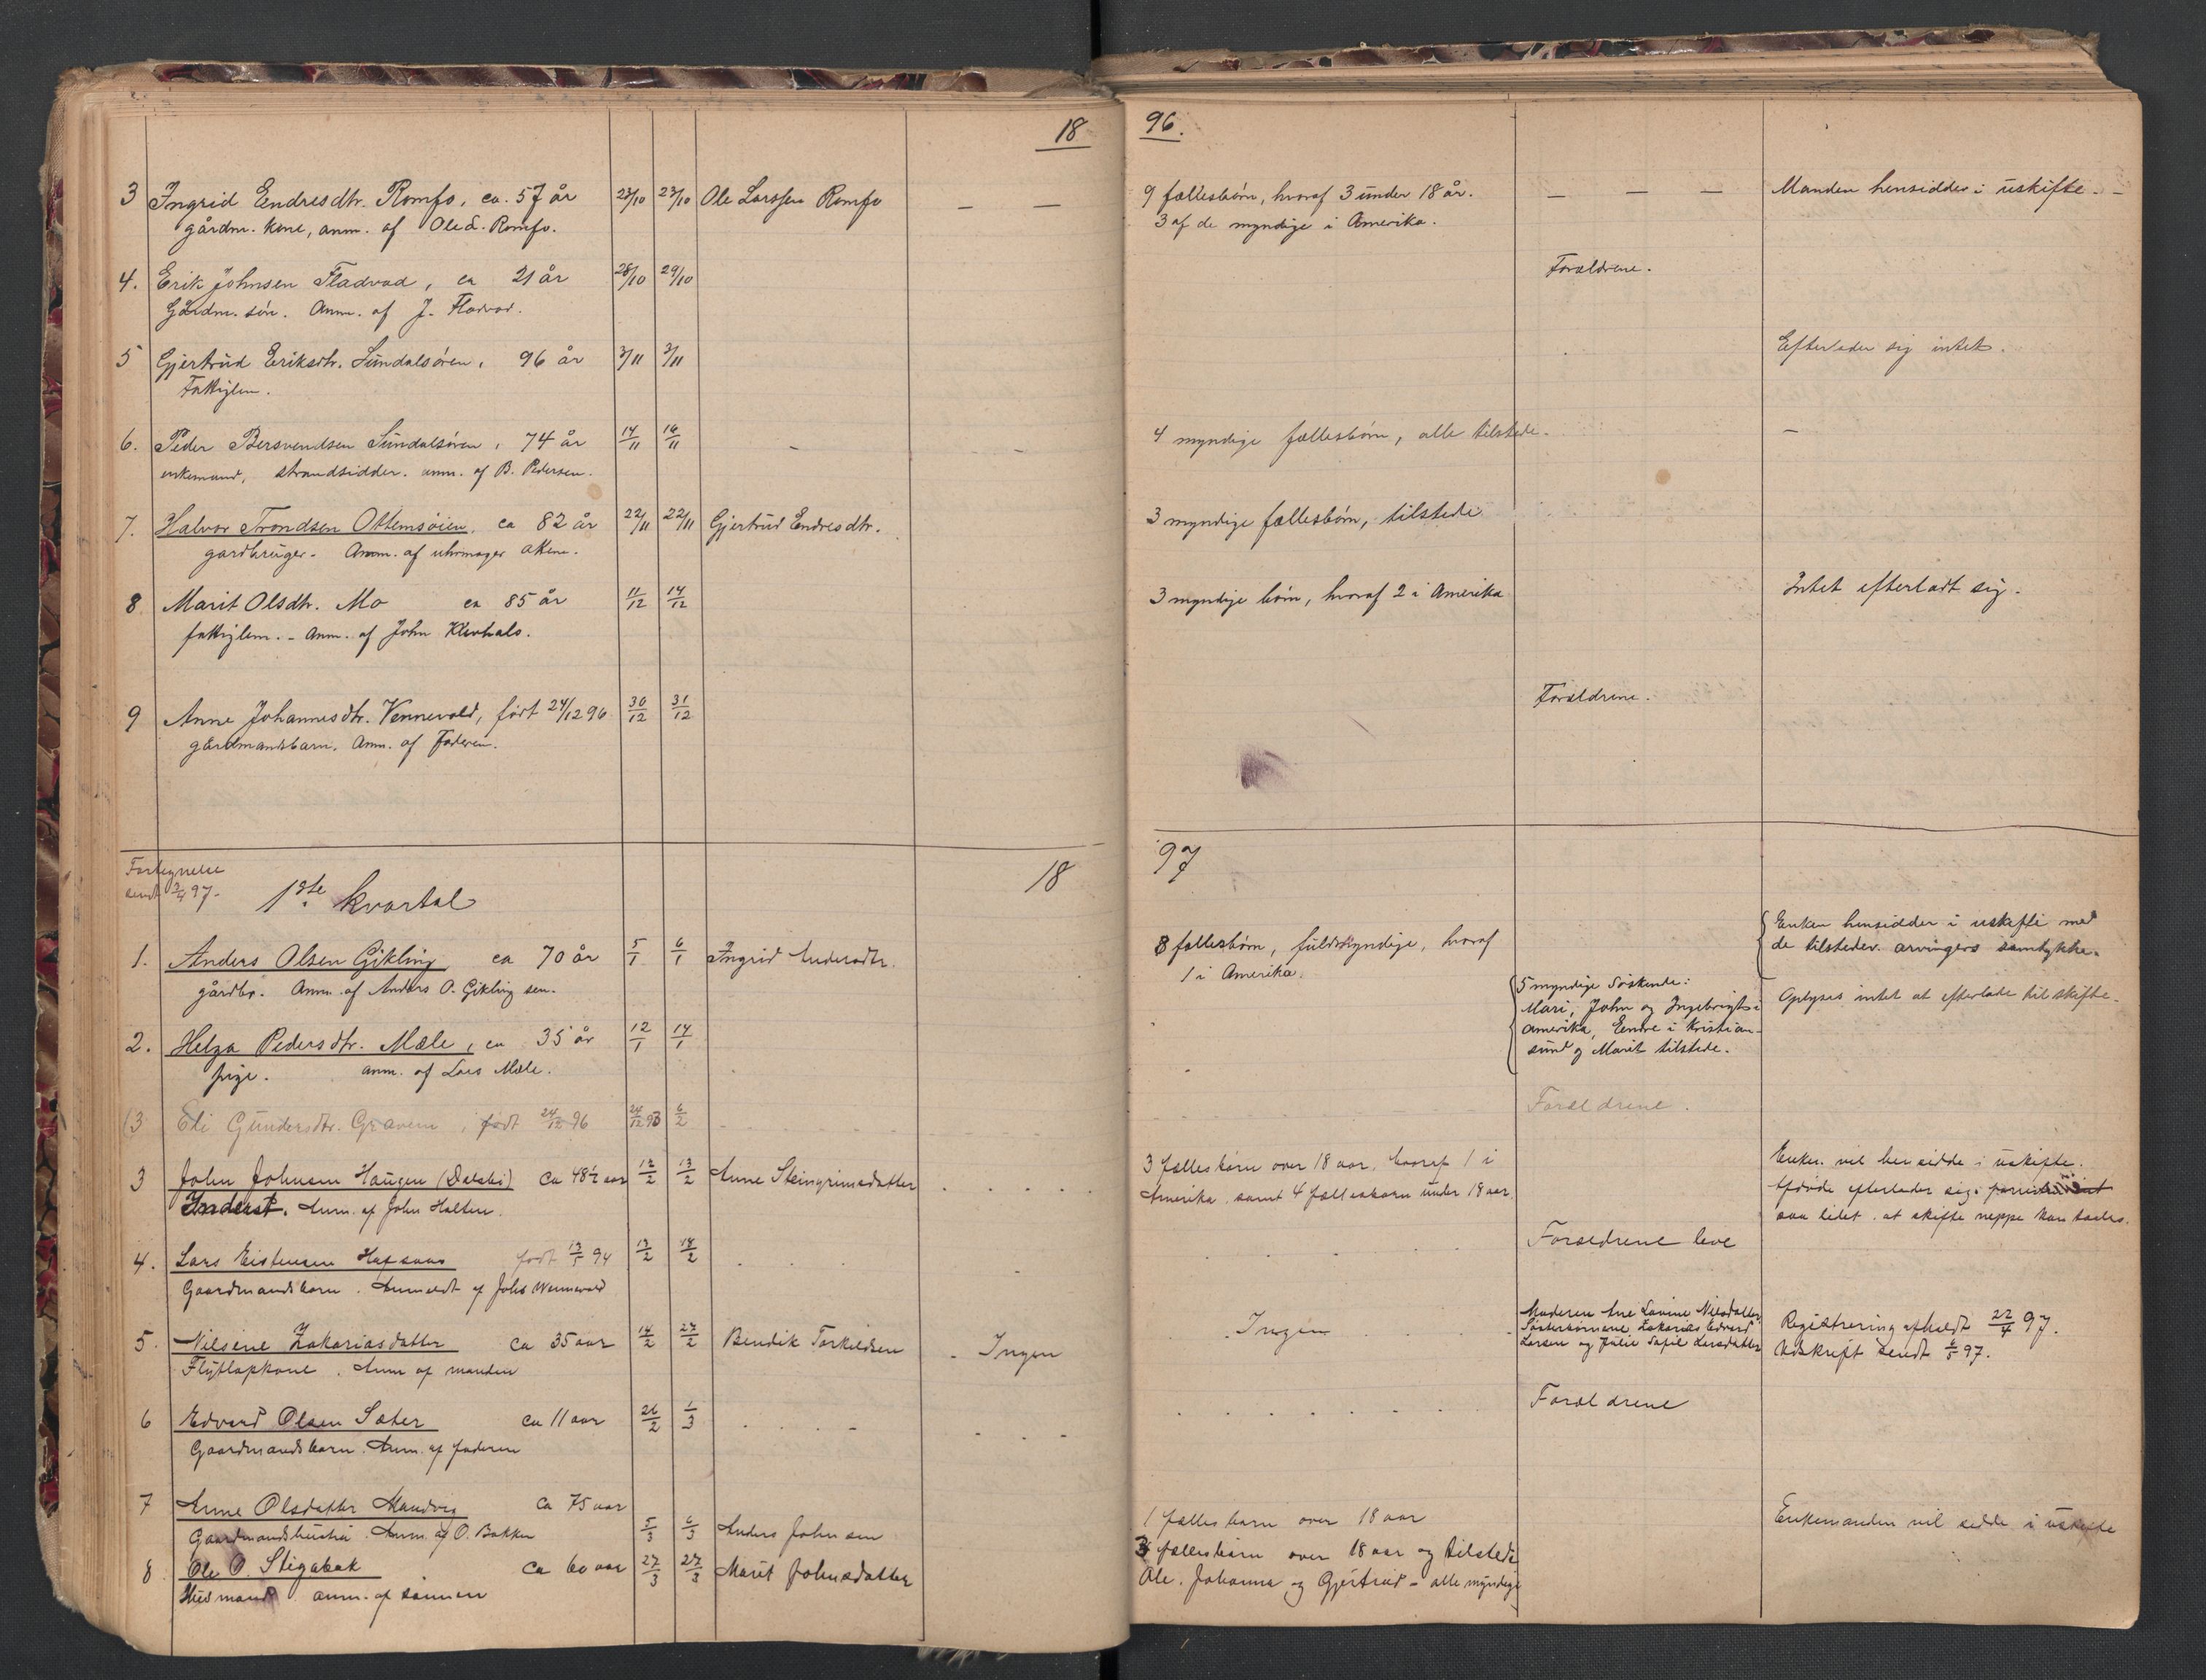 18 96.
3 Ingrid Endresdtr. Romfo, ca. 57 år 23/10 23/10 Ole Larssen Romfo — — 9 fællesbørn, hvoraf 3 under 18 år. — — — Manden hensidder i uskifte. —
gårdm. kone, anm. af Ole L. Romfo. 3 af de myndige i Amerika.
4. Erik Johnsen Fladvad, ca 21 år 28/10 29/10 Forældrene.
Gårdm. søn. Anm. af J. Fladvad.
5 Gjertrud Eriksdtr. Sundalsøren, 96 år 2/11 3/11 Efterlader sig intet.
Fattiglem.
6. Peder Bersvendsen Sundalsøren, 74 år 14/11 16/11 - - 4 myndige fællesbørn, alle tilstede. —
enkemand, strandsidder. anm. af B. Pedersen.
7. Halvor Trondsen Ottemsøien, ca 82 år 22/11 22/11 Gjertrud Endresdtr. 3 myndige fællesbørn, tilstede
gardbruger - Anm. af uhrmager Aken.
8 Marit Olsdtr. Mo ca 85 år 11/12 14/12 3 myndige børn, hvoraf 2 i Amerika Intet efterladt sig.
fattiglem. - Anm. af John Klevhals.
9 Anne Johannesdtr. Vennevold, født 24/12 96 30/12 31/12 Forældrene.
gårdmandsbarn. Anm. af Faderen.
Fortegnelse
sendt 2/4 97. 1ste kvartal 18 97
1. Anders Olsen Gikling ca 70 år 5/1 6/1 Ingrid Andersdtr. 8 fællesbørn, fuldmyndige, hvoraf Enken hensidder i uskifte med
gårdbr. Anm. af Anders O. Gikling sen. 1 i Amerika. de tilstedev. arvingers samtykke.
2. Helga Pedersdtr. Mæle, ca 35 år 12/1 14/1 5 myndige Søskende: Oplyses intet at efterlade til skifte.
pige. anm. af Lars Mæle. Mari, John og Ingebrigt i
Amerika, Endre i Kristian-
sund og Marit tilstede.
(3 Eli Gundersdtr. Gravem, født 24/12 96 24/12 96 6/2 Forældrene.
3 John Johnsen Haugen (Dalsbø) ca 48½ aar 12/2 13/2 Anne Steingrimsdatter 3 fællesbørn over 18 aar, hvoraf 1 i Enken vil hensidde i uskifte.
Inderst. Anm. af John Holten. Amerika samt 4 fællesbørn under 18 aar. Afdøde efterlader sig
saa lidet at skifte neppe kan holdes.
4. Lars Eistensen Hafsaas født 13/5 94 13/2 18/2 Forældrene leve
Gaardmandsbarn. Anmeldt af Johs Wennevold
5. Nilsine Zakariasdatter ca 35 aar 14/2 27/2 Bendik Torkildsen - Ingen Ingen Moderen Ane Lovine Nilsdatter Registrering afholdt 22/4 97.
Flytlapkone. Anm af manden Søsterbørnene Zakarias Edvard Udskrift sendt 6/5 97.
Larsen og Julie Sofie Larsdatter
6 Edvard Olsen Sæter ca 11 aar 26/2 1/3 Forældrene
Gaardmandsbarn. Anm. af faderen
7 Anne Olsdatter Musvig ca 75 aar 1 fællesbarn over 18 aar Enkemanden vil sidde i uskifte
Gaardmandshustru. Anm. af O. Bakken 5/3 6/3 Anders Johnsen
8 Ole O. Stigabak ca 60 aar 27/3 27/3 Marit Johnsdatter 3 fællesbørn over 18 aar og tilstede
Husmand. anm. af sønnen Ole, Johanna og Gjertrud - alle myndige